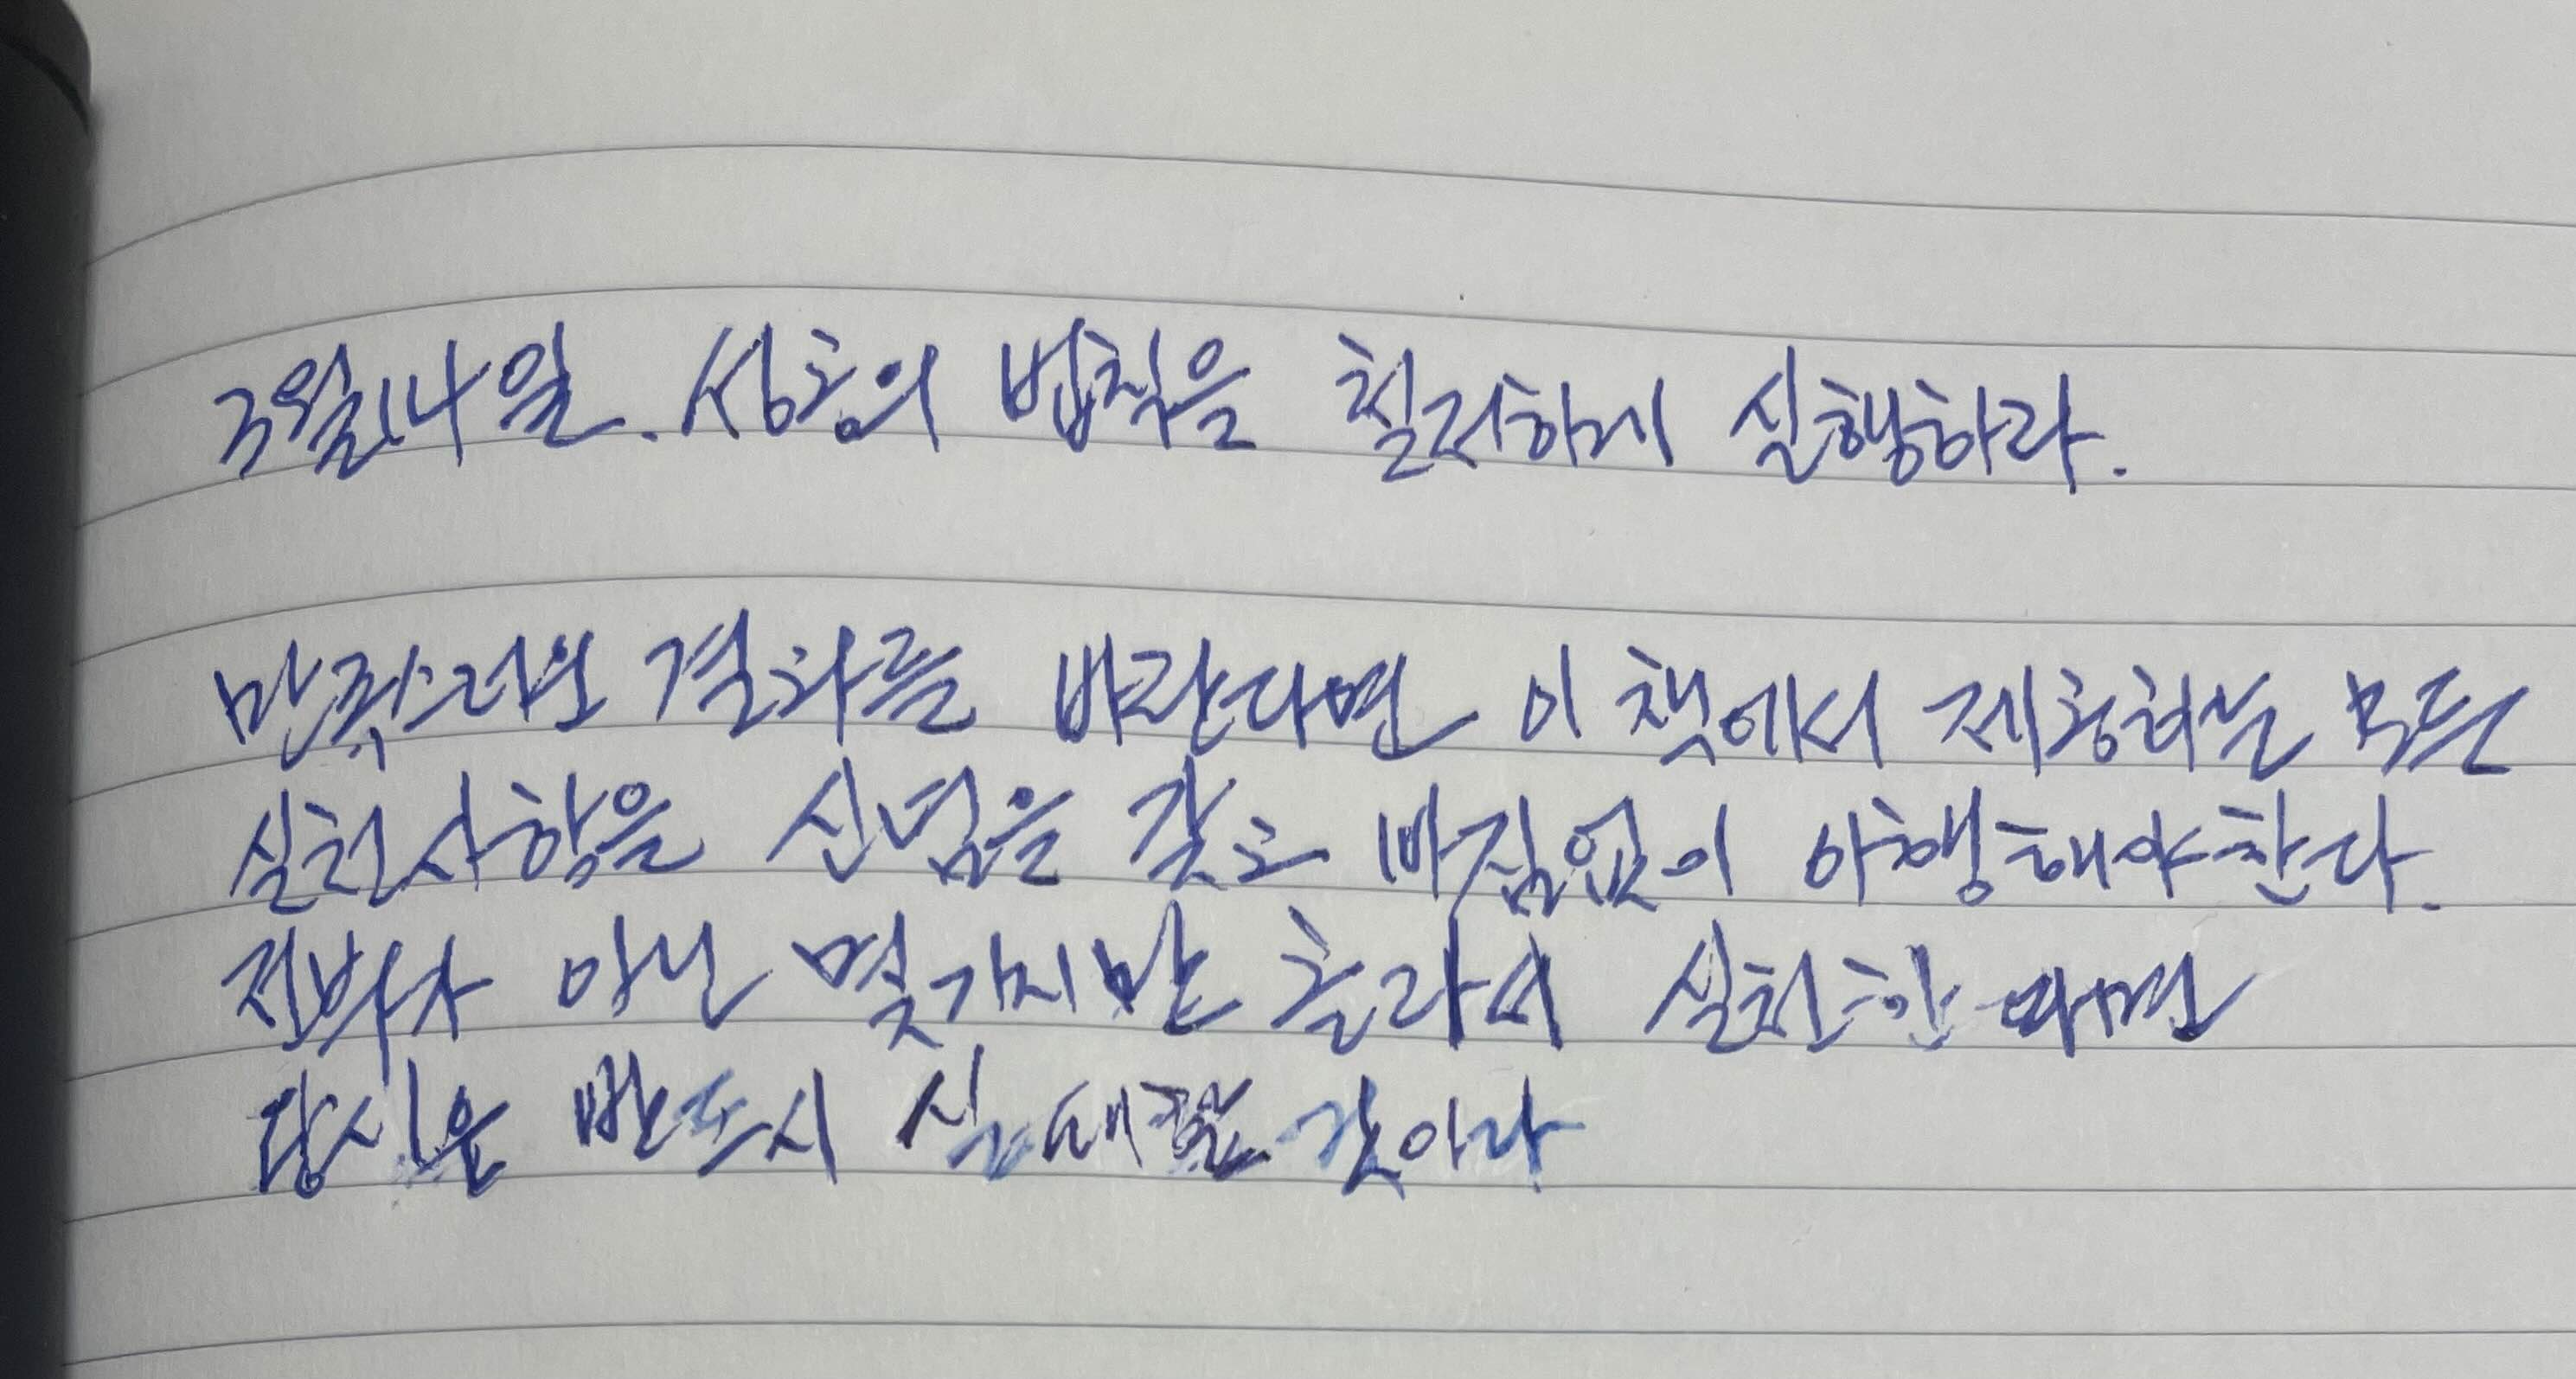 3월14일. 성공의 법칙을 철저하게 실행하라.
만족스러운 결과를 바란다면 이 책에서 제공하는 모든
실천사항을 신념을 갖고 빠짐없이 이행해야한다.
전부가 아닌 몇가지만 골라서 실천한다면
당신은 반드시 실패할 것이다